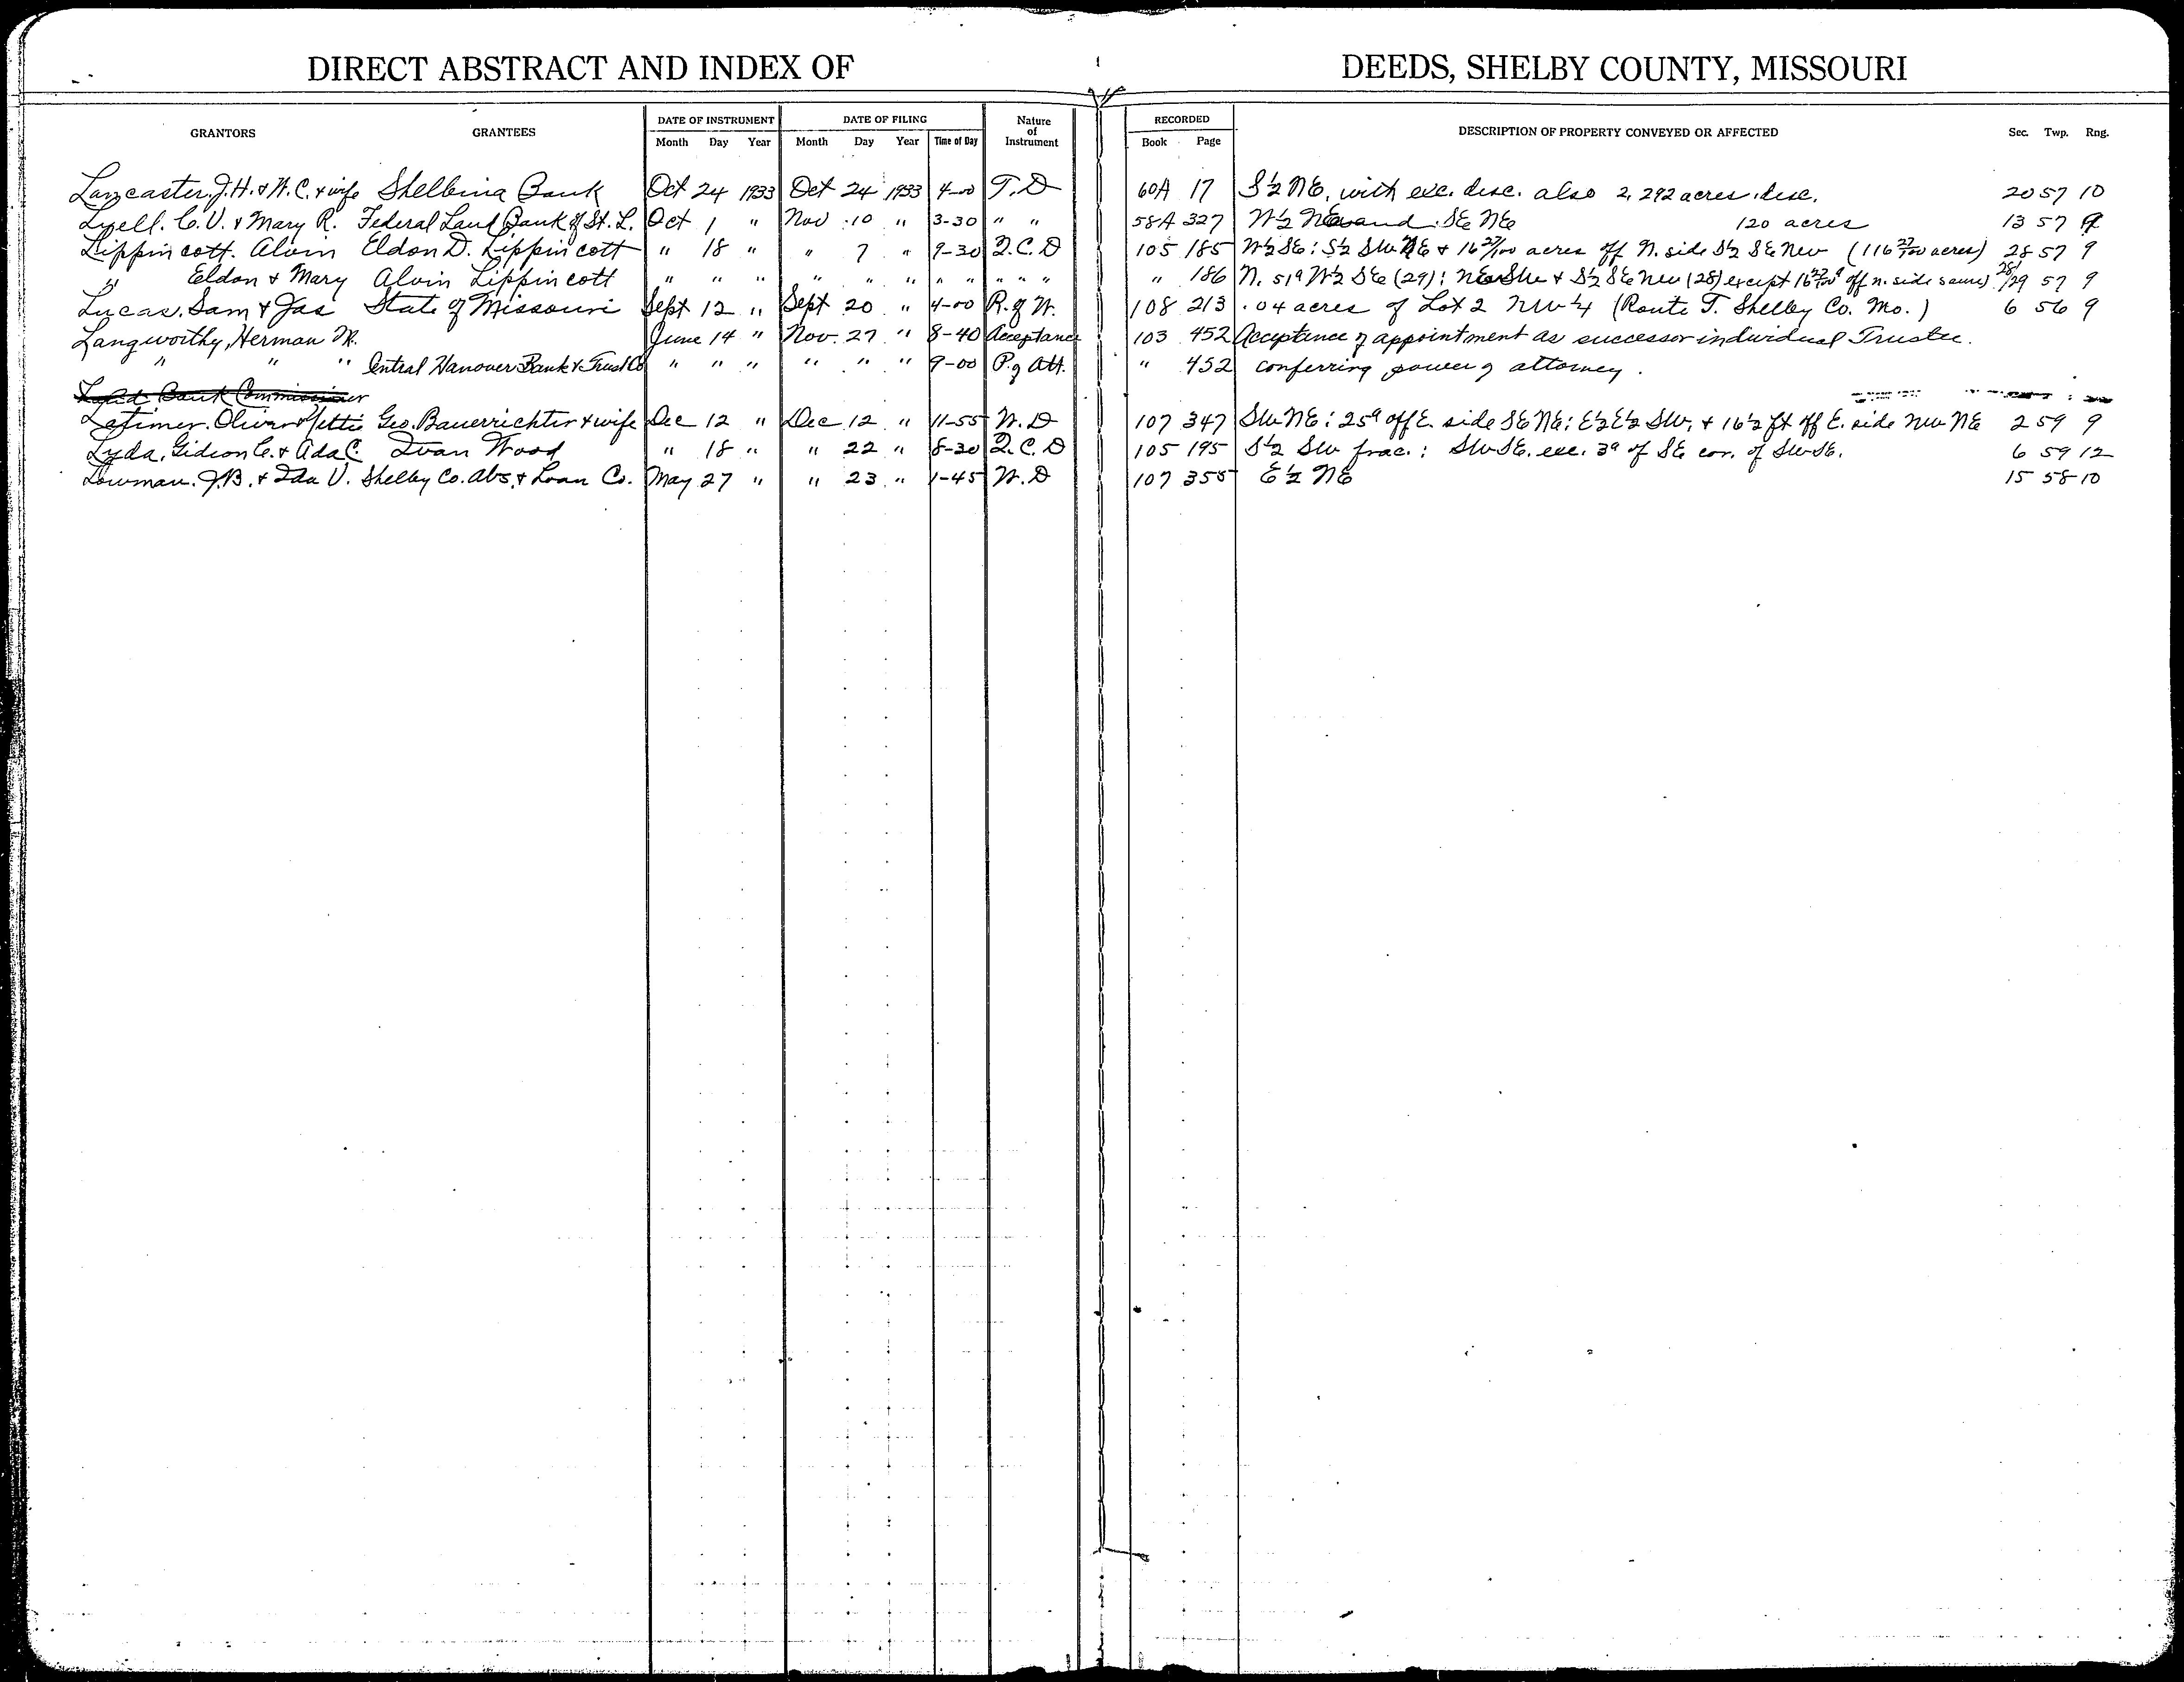 DIRECT ABSTRACT AND INDEX OF DEEDS, SHELBY COUNTY, MISSOURI
GRANTORS GRANTEES DATE OF INSTRUMENT DATE OF FILING Nature of Instrument RECORDED DESCRIPTION OF PROPERTY CONVEYED OR AFFECTED Sec. Twp. Rng.
Month Day Year Month Day Year Time of Day Book Page
Lancaster, J.H. & W.C. & wife Shelbina Bank Oct 24 1933 Oct 24 1933 4-00 T.D 60A 17 S½ NE, with exc. desc. also 2.292 acres desc. 20 57 10
Lyell. C.V. & Mary R. Federal Land Bank of St. L. Oct 1 " Nov 10 " 3-30 " " 58A 327 W½ NE and SE NE 120 acres 13 57 9
Lippincott. Alvin Eldon D. Lippincott " 18 " " 7 " 9-30 Q.C.D 105 185 W½ SE: S½ SW NE & 16 27/100 acres off N. side S½ SE NW (116 27/100 acres) 28 57 9
" Eldon & Mary Alvin Lippincott " " " " " " " " " " " 186 N. 51a W½ SE (29): NE SW & S½ SE NW (28) except 16 27/100 a off n. side same) 28/29 57 9
Lucas, Sam & Jas State of Missouri Sept 12 " Sept 20 " 4-00 R. of W. 108 213 .04 acres of Lot 2 NW ¼ (Route T. Shelby Co. Mo.) 6 56 9
Langworthy, Herman M. June 14 " Nov. 27 " 8-40 Acceptance 103 452 Acceptance of appointment as successor individual Trustee.
" " " Central Hanover Bank & Trust Co " " " " " " 9-00 P. of Att. " 452 conferring power of attorney.
Land Bank Commissioner
Latimer. Oliver & Nettie Geo. Bauerrichter & wife Dec 12 " Dec 12 " 11-55 W.D 107 347 SW NE: 25a off E. side SE NE: E½ E½ SW, & 16½ ft off E. side NW NE 2 59 9
Lyda, Gideon C. & Ada C. Ivan Wood " 18 " " 22 " 8-30 Q.C.D 105 195 S½ SW frac.: SW SE. exc. 3a of SE cor. of SW SE. 6 59 12
Lowman. J.B. & Ida V. Shelby Co. Abs. & Loan Co. May 27 " " 23 " 1-45 W.D 107 355 E½ NE 15 58 10